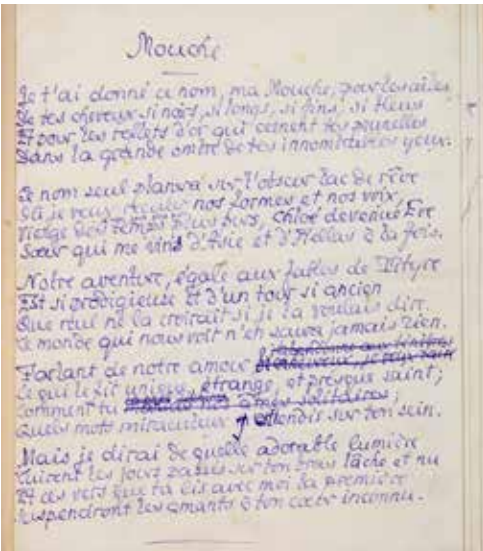 Mouche
Je t'ai donné ce nom, ma Mouche, pour les ailes
De tes cheveux si noirs, si longs, si fins, si bleus
Et pour les reflets d'or qui cernent tes prunelles
Dans la grande ombre de tes innombrables yeux.
Ce nom seul planera sur l'obscur lac de rêve
Où je veux nos formes et nos voix,
Vierge des temps plus purs, Chloé devenue Ève
Sœur qui me vins d'Asie et d'Hellas à la fois.
Notre aventure, égale aux fables de Tityre
Est si prodigieuse et d'un tour si ancien
Que nul ne la croirait si je la voulais dire
Le monde qui nous voit n'en saura jamais rien.
Parlant de notre amour
Ce qui le fit unique, étrange, et presque saint;
Comment tu âmes solitaires;
Quels mots miraculeux sur ton sein.
Mais je dirai de quelle adorable lumière
Luirent les jours passés sur ton bras lâche et nu
Et ces vers que tu lis avec moi la première
Suspendront les amants à ton cœur inconnu.